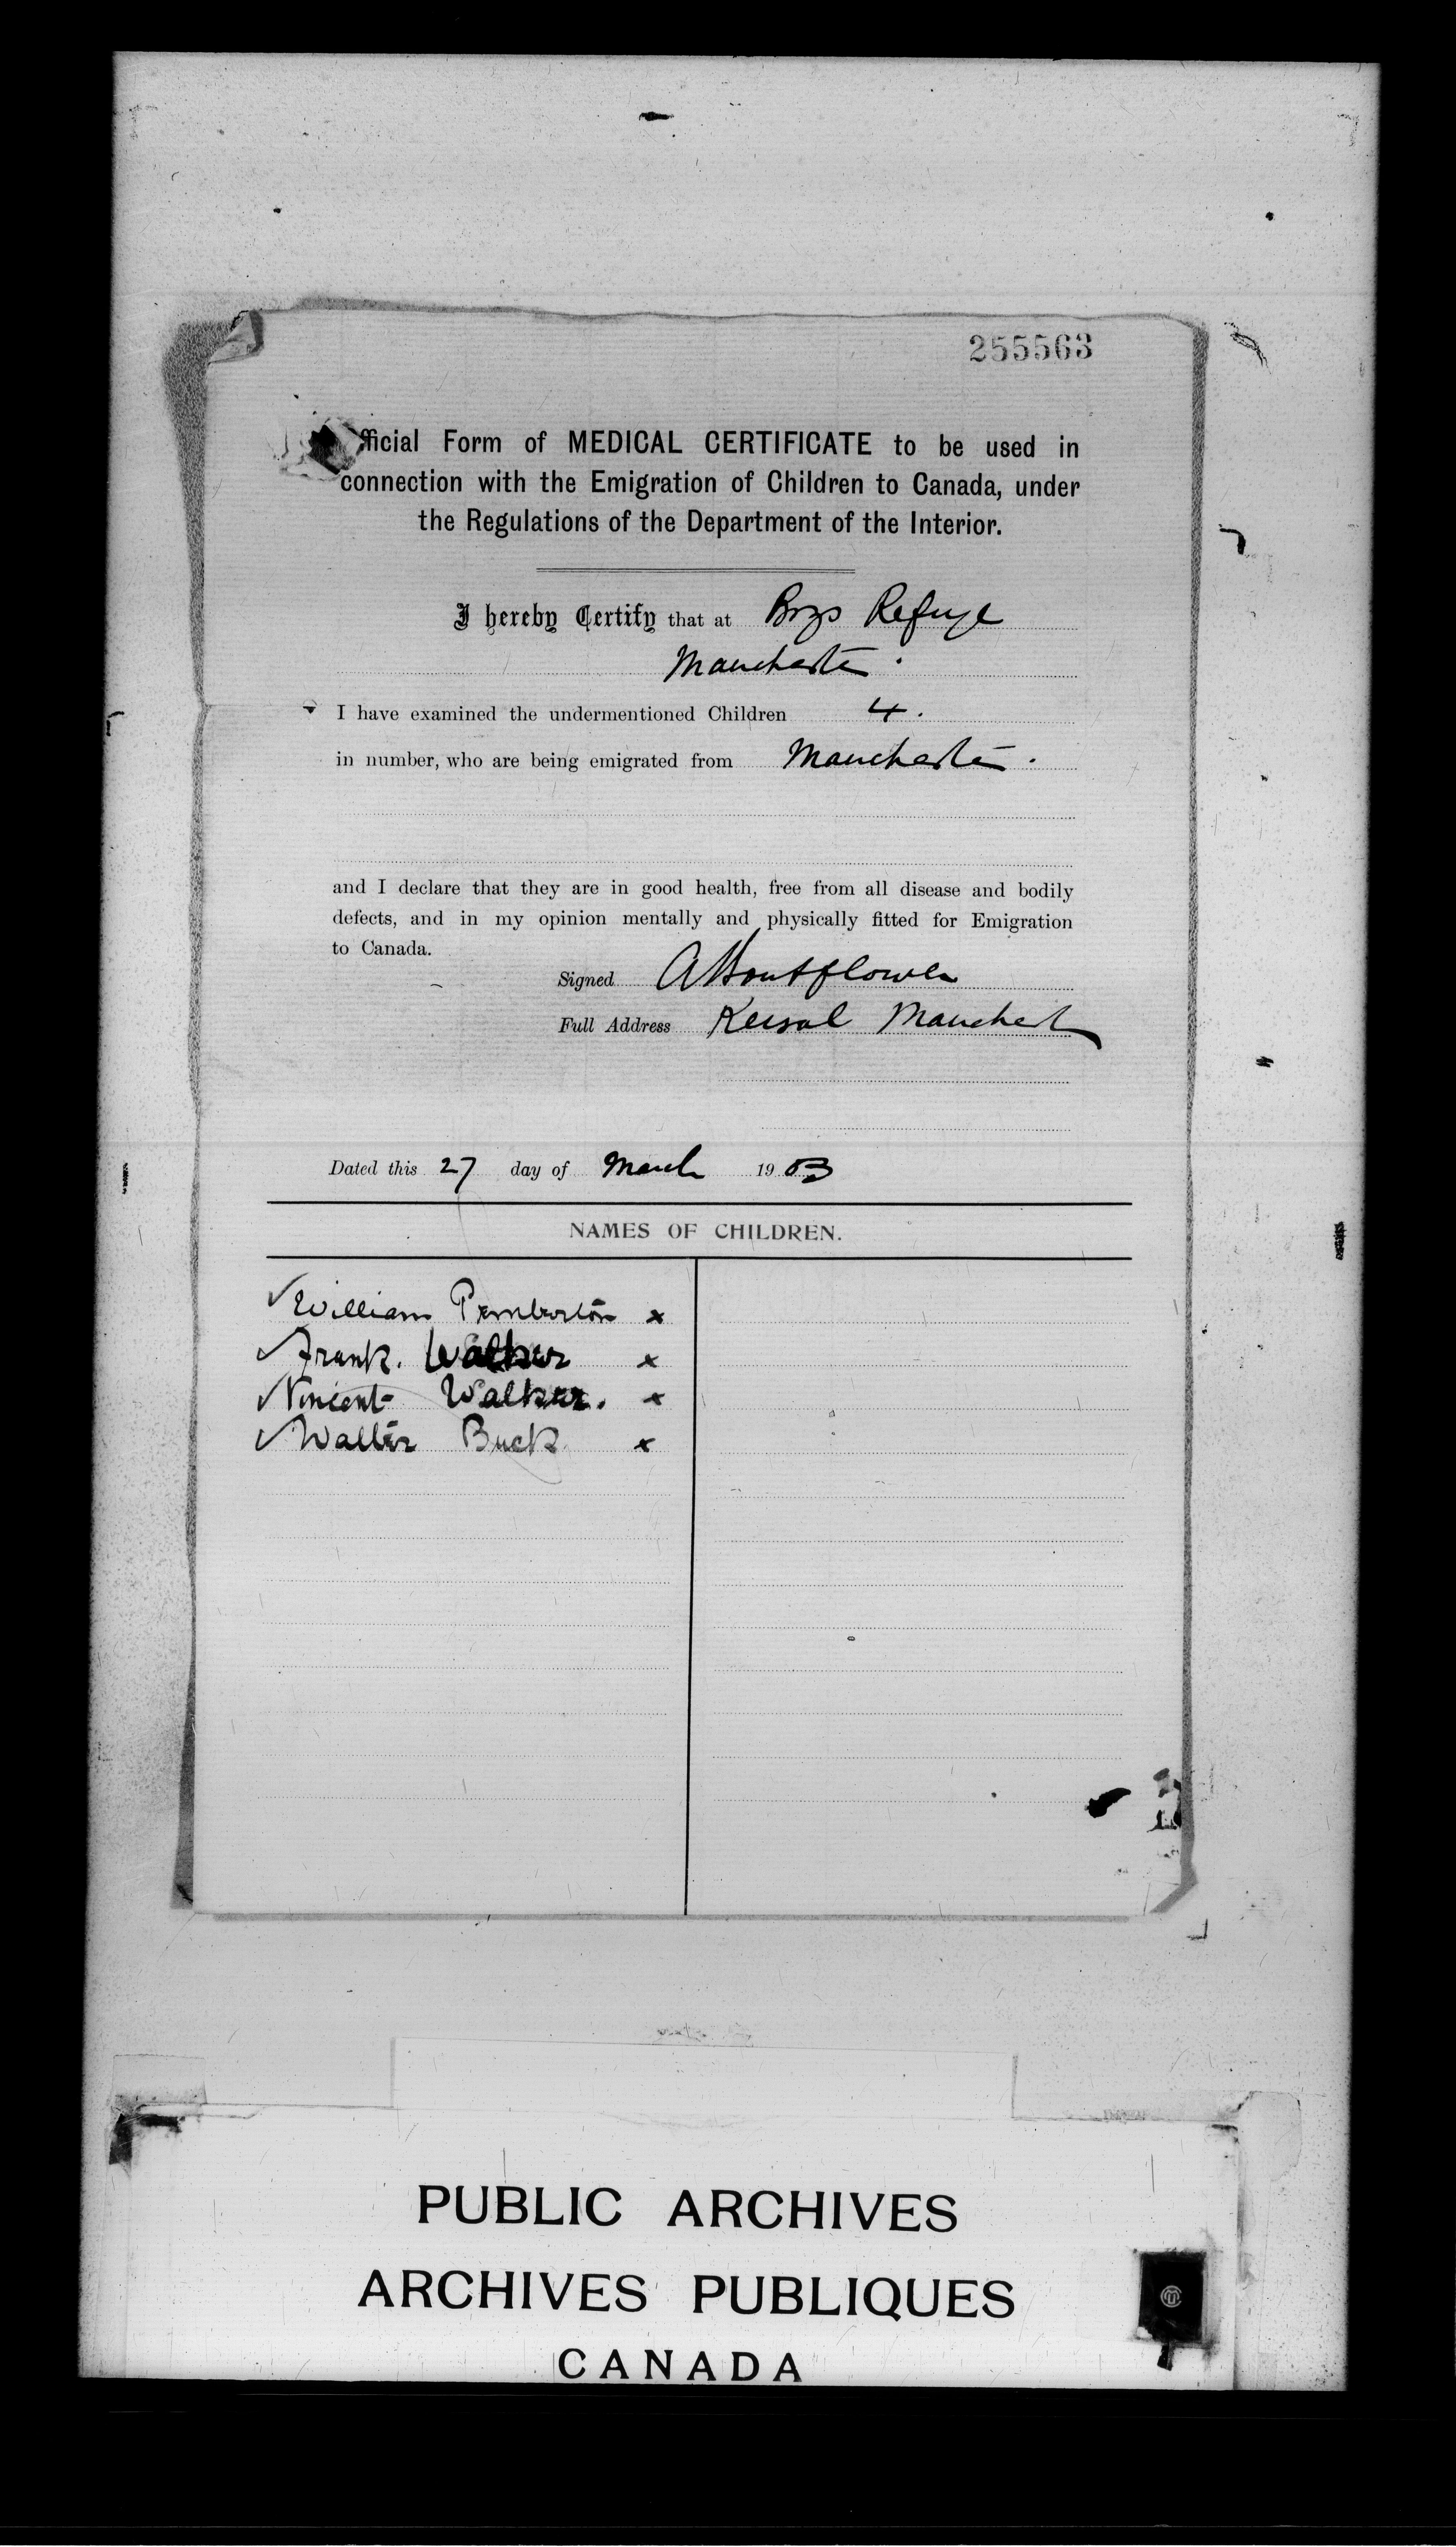 255563
fficial Form of MEDICAL CERTIFICATE to be used in
connection with the Emigration of Children to Canada, under
the Regulations of the Department of the Interior.
I hereby Certify that at Boys Refuge
Manchester.
I have examined the undermentioned Children 4.
in number, who are being emigrated from Manchester.
and I declare that they are in good health, free from all disease and bodily
defects, and in my opinion mentally and physically fitted for Emigration
to Canada.
Signed A Boutflower
Full Address Kersal Manchest
Dated this 27 day of March 1903
NAMES OF CHILDREN.
✓ William Pemberton x
✓ Frank. Walker x
✓ Vincent Walker. x
✓ Walter Buck x
PUBLIC ARCHIVES
ARCHIVES PUBLIQUES
CANADA